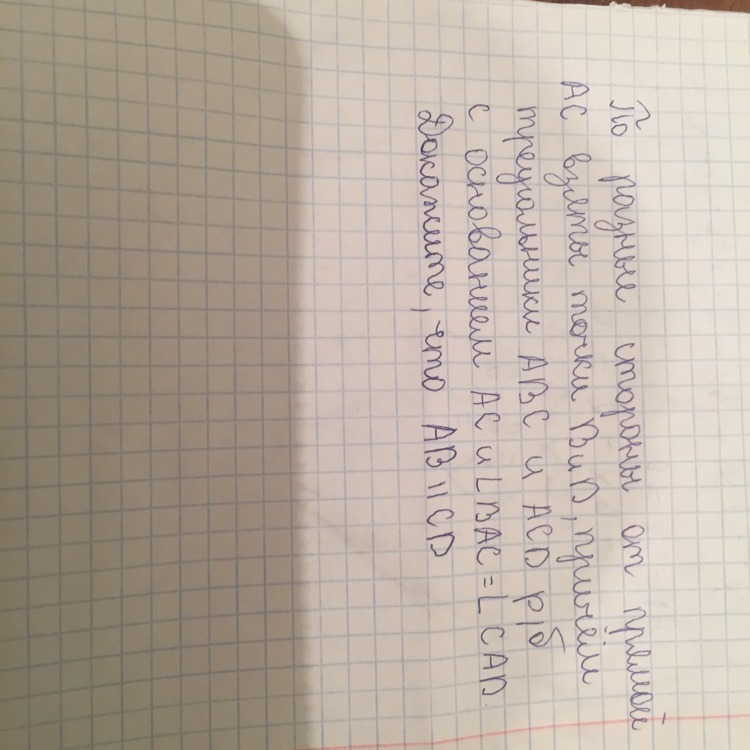 По разные стороны от прямой
АС взяты точки В и D, причём
треугольники АВС и ACD р/б
с основанием АС и ∠ВАС = ∠CAD.
Докажите, что АВ || CD